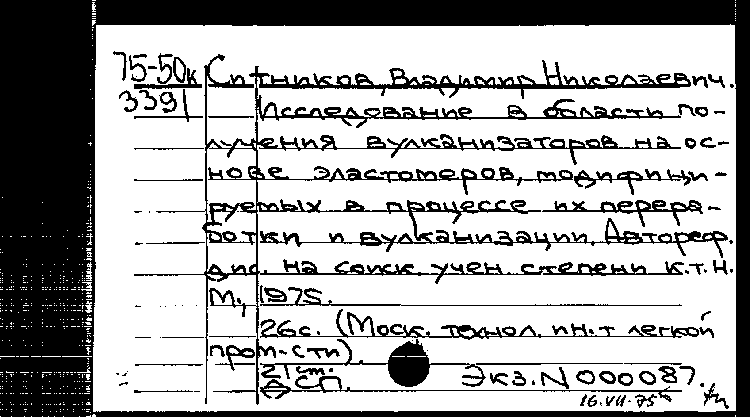 75-50к Ситников, Владимир Николаевич.
3391 Исследование в области по-
лучения вулканизаторов на ос-
нове эластомеров, модифици-
руемых в процессе их перера-
ботки и вулканизации. Автореф.
дис. на соиск. учен. степени к.т.н.
М., 1975.
26 с. (Моск. технол. ин-т легкой
пром-сти).
21 ст.
ДСП. Экз. N 000087.
16.VII.75